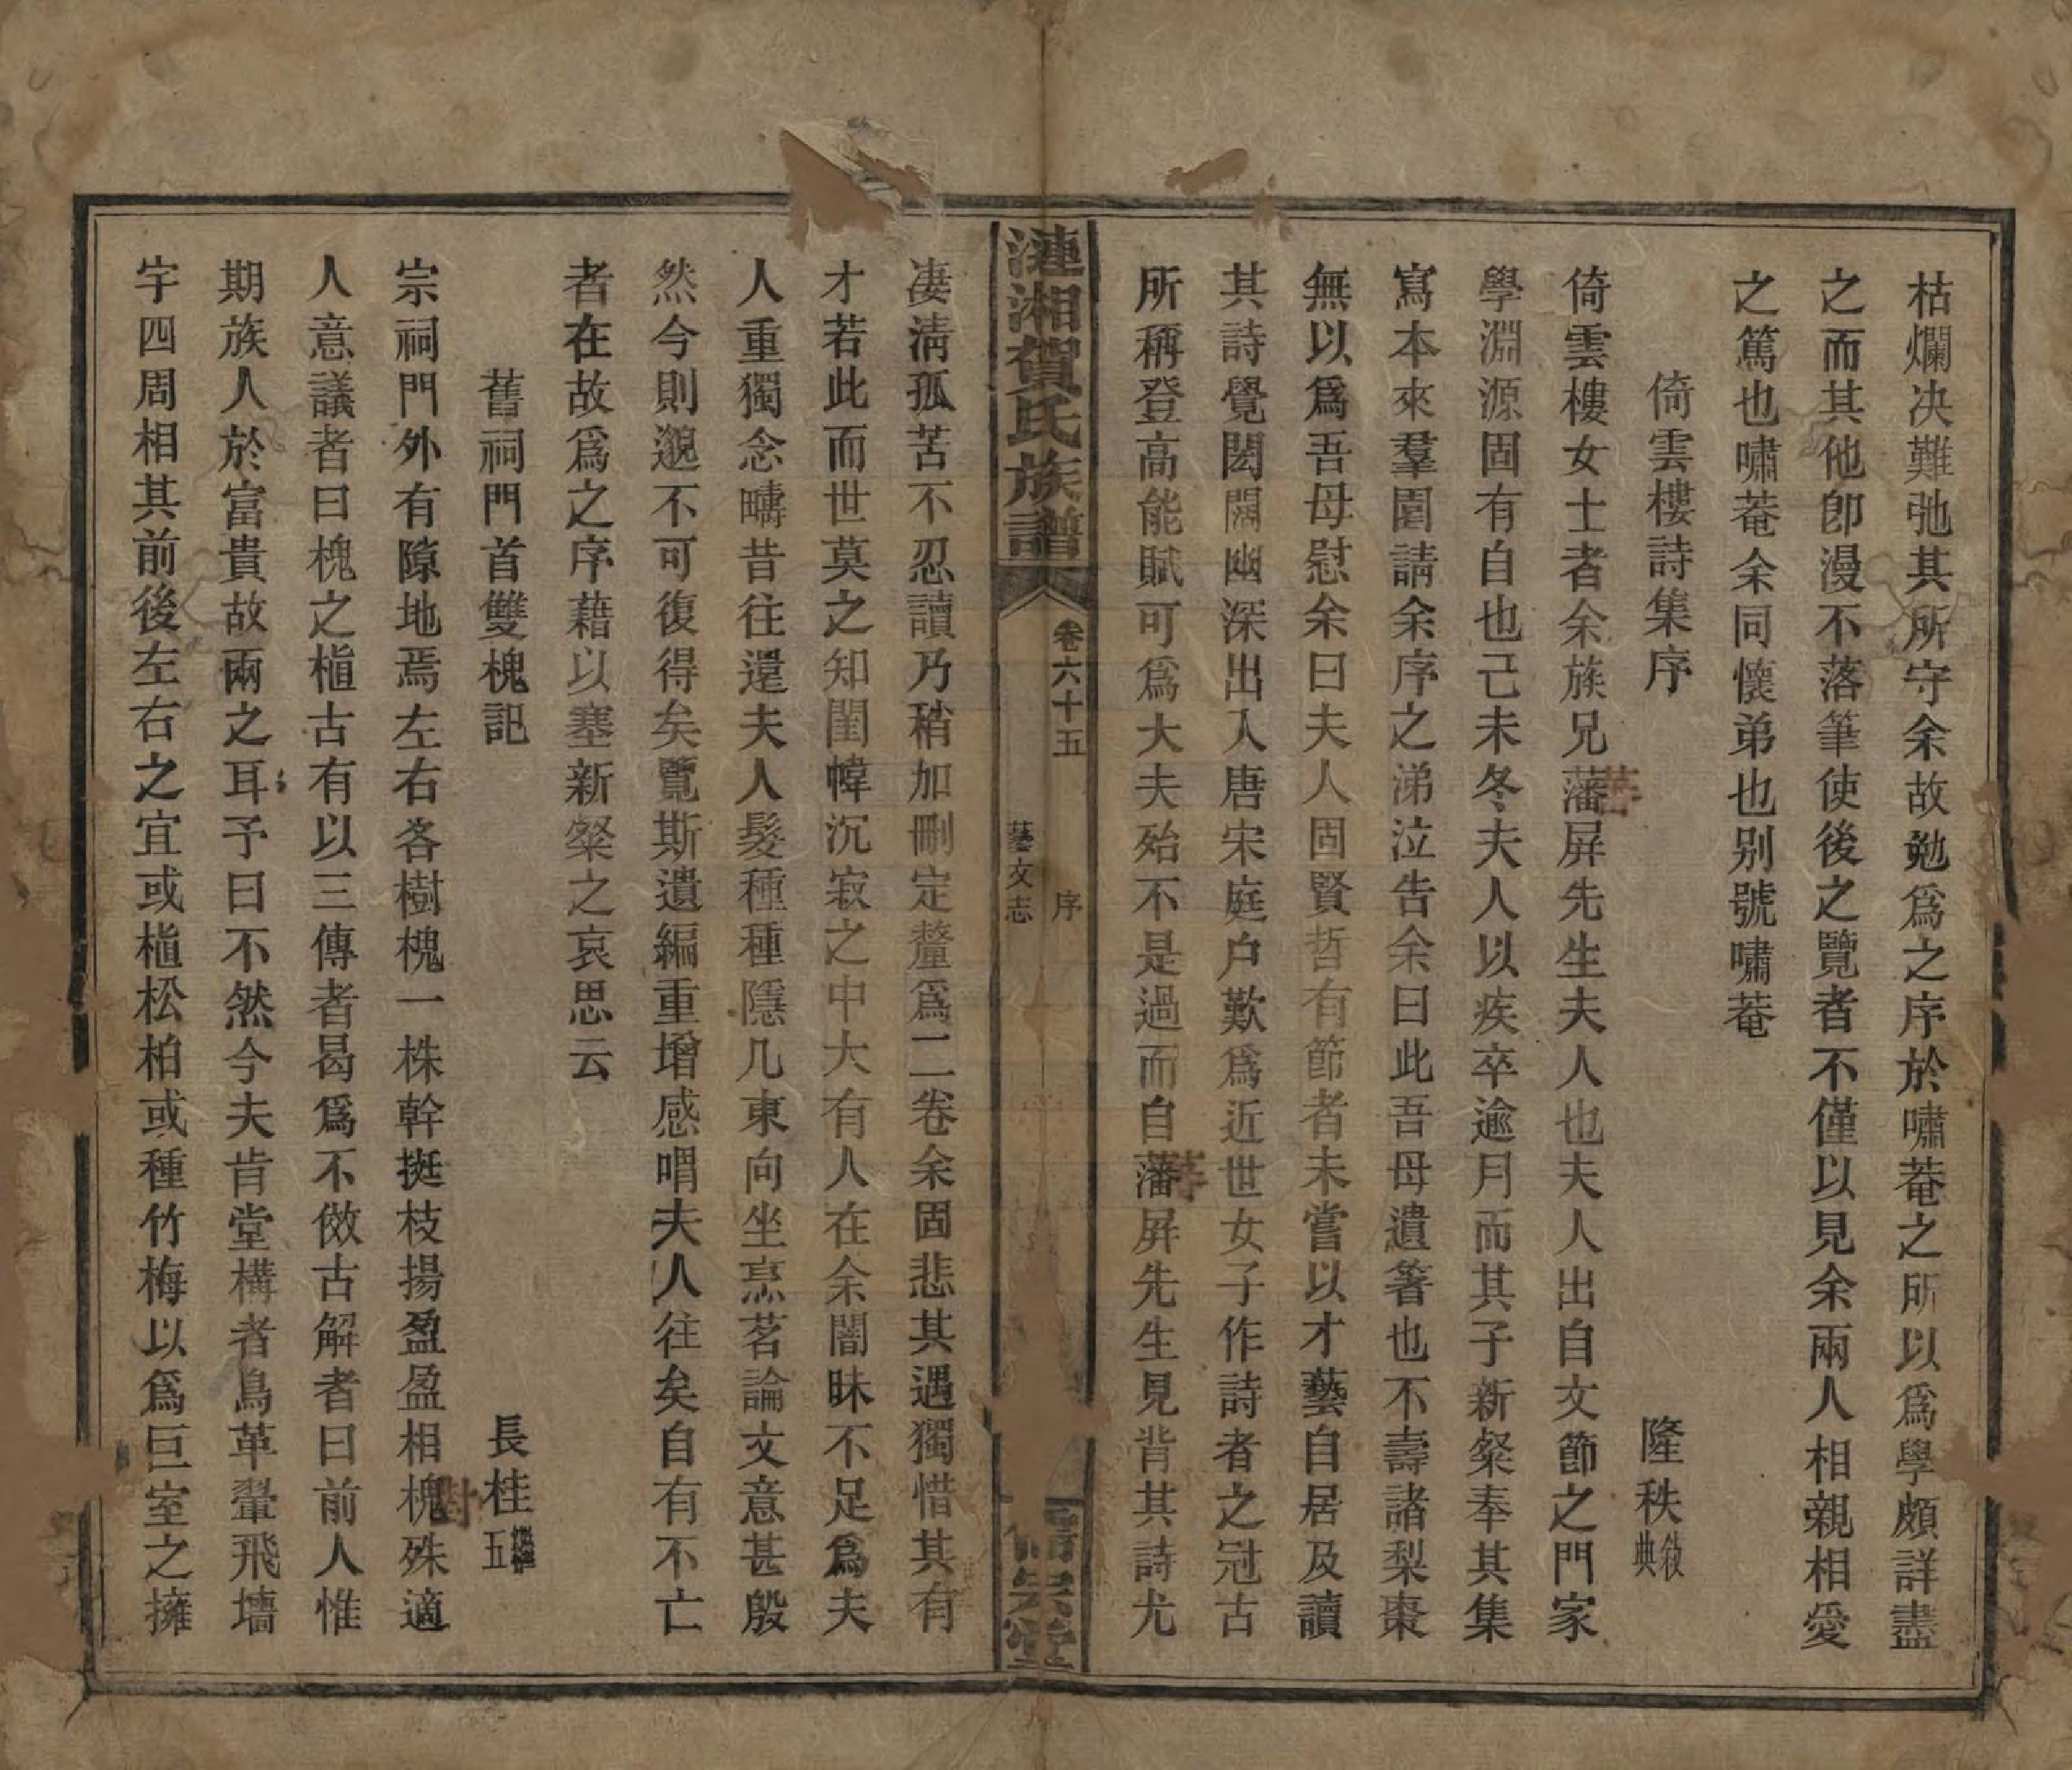 枯爛决難弛其所守余故勉爲之序於嘯菴之所以爲學頗詳盡
之而其他卽漫不落筆使後之覽者不僅以見余兩人相親相愛
之篤也嘯菴余同懷弟也别號嘯菴
倚雲樓詩集序　隆秩敘典
倚雲樓女士者余族兄藩屏先生夫人也夫人出自文節之門家
學淵源固有自也己未冬夫人以疾卒逾月而其子新粲奉其集
寫本來羣圍請余序之涕泣告余曰此吾母遺箸也不壽諸梨棗
無以爲吾母慰余曰夫人固賢哲有節者未嘗以才藝自居及讀
其詩覺閎闊幽深出入唐宋庭户歎爲近世女子作詩者之冠古
所稱登高能賦可爲大夫殆不是過而自藩屏先生見背其詩尤
漣湘賀氏族譜
卷六十五　序
藝文志
宗堂
凄淸孤苦不忍讀乃稍加刪定釐爲二卷余固悲其遇獨惜其有
才若此而世莫之知閨幃沉寂之中大有人在余闇昧不足爲夫
人重獨念疇昔往還夫人髮種種隱几東向坐烹茗論文意甚殷
然今則邈不可復得矣覽斯遺編重增感喟夫人往矣自有不亡
者在故爲之序藉以塞新粲之哀思云
舊祠門首雙槐記　長桂五
宗祠門外有隙地焉左右各樹槐一株幹挺枝揚盈盈相槐殊適
人意議者曰槐之植古有以三傳者曷爲不倣古解者曰前人惟
期族人於富貴故兩之耳予曰不然今夫肯堂構者鳥革翬飛墻
宇四周相其前後左右之宜或植松柏或種竹梅以爲巨室之擁